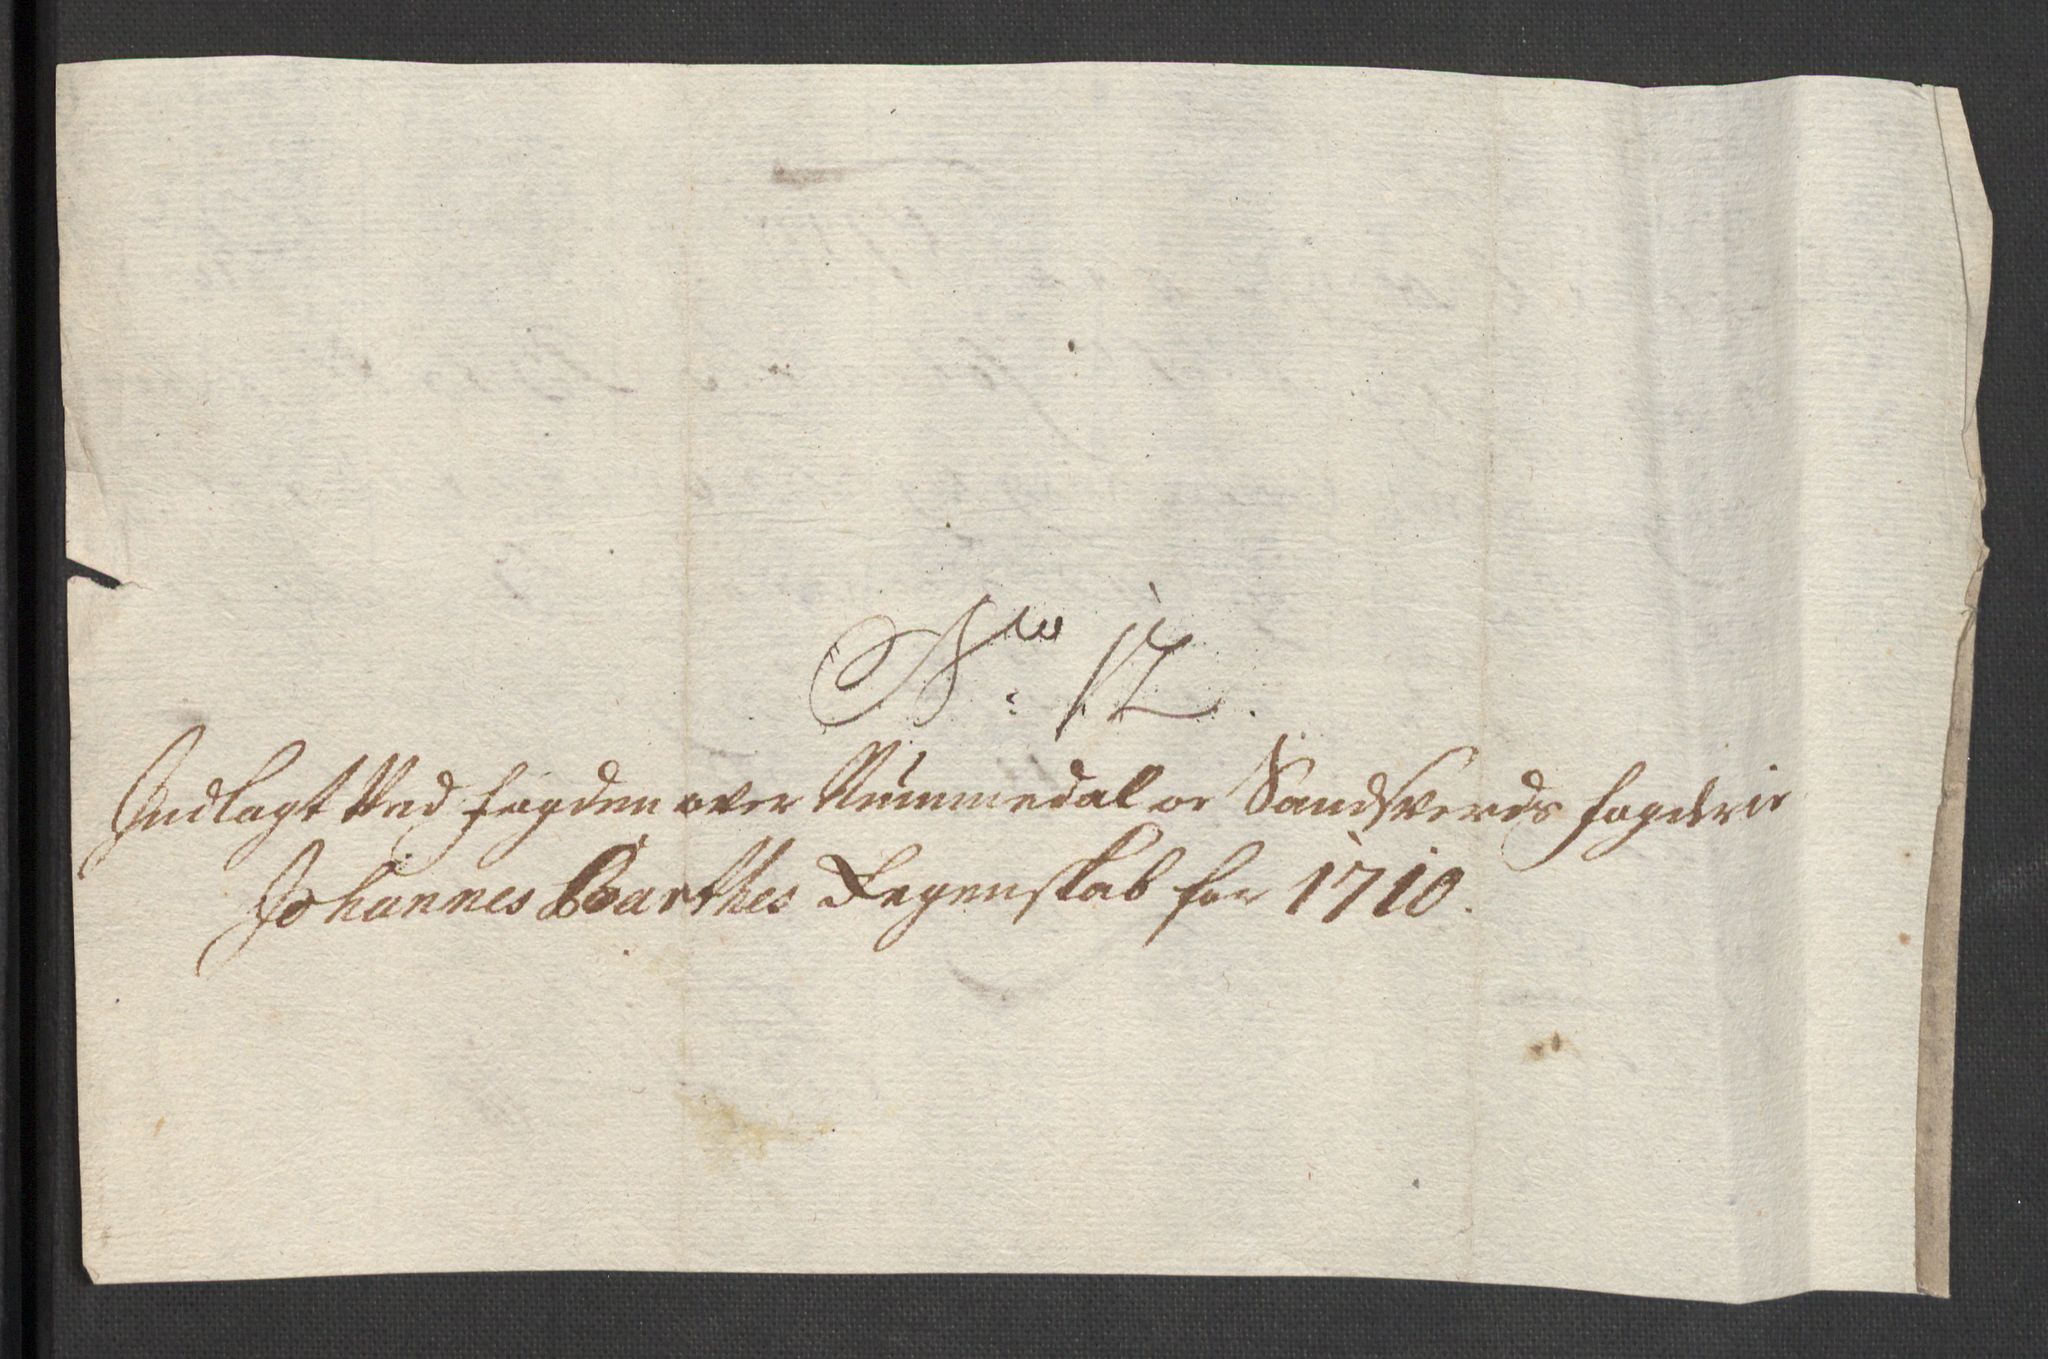 No: 12.
Indlagt Ved fogden over Nummedal oe Sandsverds fogderie
Johannes Barthes Regenskab for 1710.